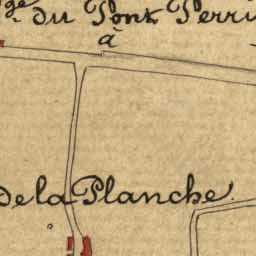 ge du Pont Perri
à
de la Planche.